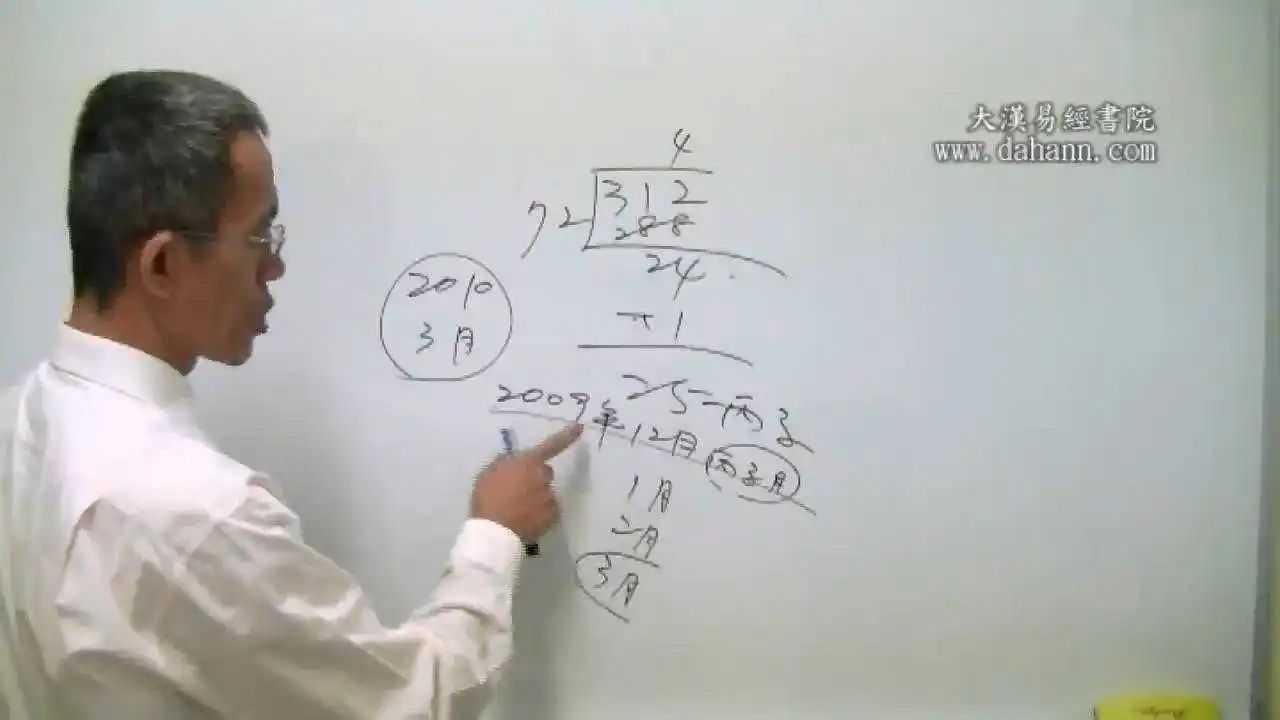 大漢易經書院
www.dahann.com
4
72 312
288
24
+1
25 丙子
2010
3月
2009年12月 丙子月
1月
2月
3月